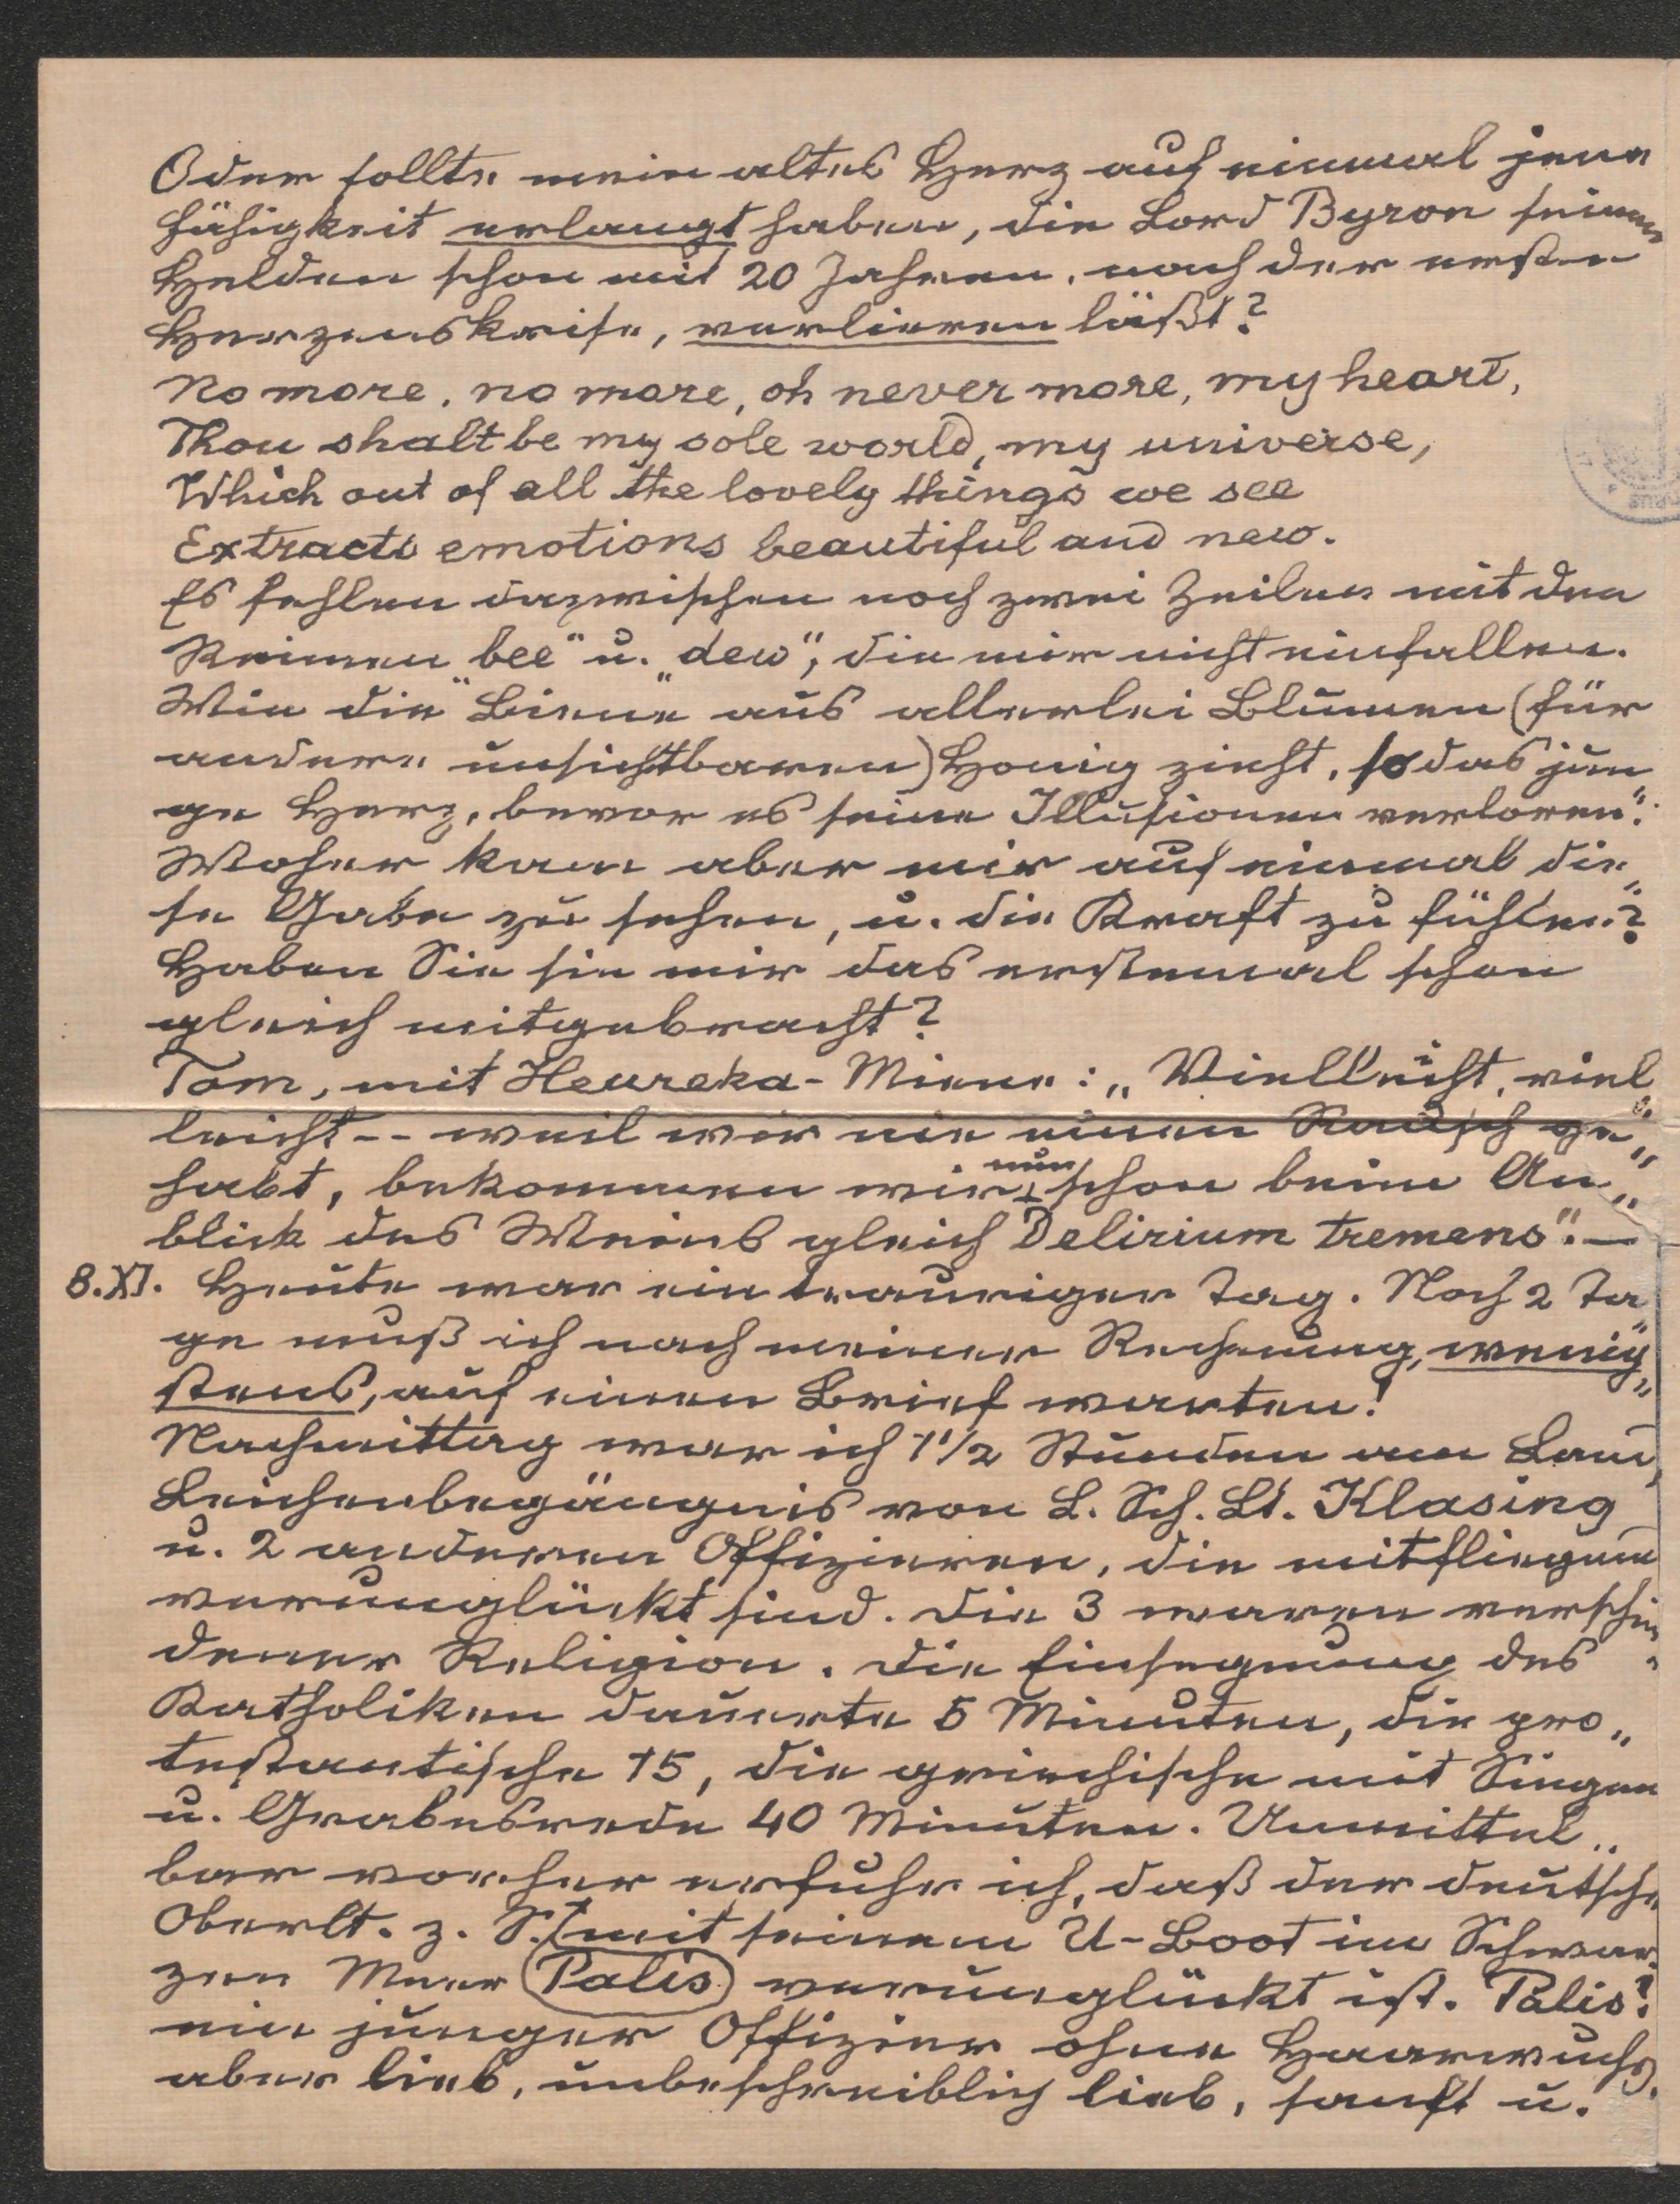 Oder sollte mein altes Herz auf einmal jene
Fähigkeit erlangt haben, die Lord Byron seinem
Helden schon mit 20 Jahren, nach der ersten
Herzenskrise, verlieren läßt?
No more, no more, oh never more, my heart,
Thou shalt be my sole world, my universe,
Which out of all the lovely things we see
Extracts emotions beautiful and new.
Es fehlen dazwischen noch zwei Zeilen mit den
Reimen „bee“ u. „dew“, die mir nicht einfallen.
Wie die Biene aus allerlei Blumen (für
andere unsichtbaren) Honig zieht, so das jun
ge Herz, bevor es seine Illusionen verloren“.
Woher kam aber mir auf einmal die„
se Gabe zu sehen, u. die Kraft zu fühlen?
Haben Sie sie mir das erstemal schon
gleich mitgebracht?
Tom, mit Heureka-Miene: „Vielleicht, viel„
leicht -- weil wir nie einen Rausch ge„
habt, bekommen wir nun schon beim An„
blick des Weins gleich Delirium tremens“. —
8.XI. Heute war ein trauriger Tag. Noch 2 Ta„
ge muß ich nach meiner Rechnung, wenig„
stens, auf einen Brief warten!
Nachmittag war ich 1 1/2 Stunden am Land,
Leichenbegängnis von L. Sch. Lt. Klasing
u. 2 anderen Offizieren, die mitfliegend
verunglückt sind. Die 3 waren verschie„
dener Religion. Die Einsegnung des
Katholiken dauerte 5 Minuten, die pro„
testantische 15, die griechische mit Singen
u. Grabesrede 40 Minuten. Unmittel„
bar vorher erfuhr ich, daß der deutsche
Oberlt. z. S. mit seinem U-Boot im Schwar„
zen Meer Palis verunglückt ist. Palis!
ein junger Offizier ohne Haarwuchs,
aber lieb, unbeschreiblich lieb, sanft u.